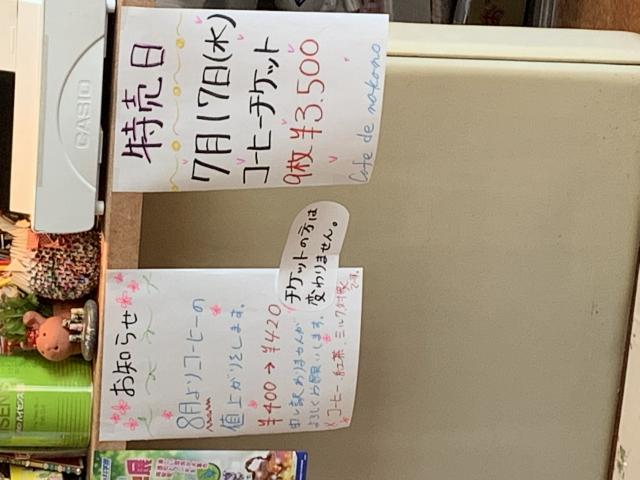 CASIO
特売日
7月17日(水)
コーヒーチケット
9枚 ¥3.500
Cafe de nokono
お知らせ
8月よりコーヒーの
値上がりをします。
¥400→¥420
申し訳ありませんが
よろしくお願いします。
※コーヒー 紅茶 ミルク対象
です。
チケットの方は
変わりません。